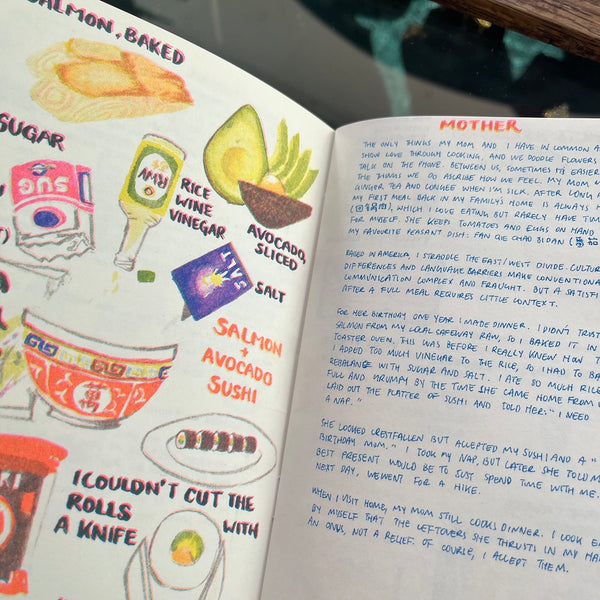 SALMON, BAKED
SUGAR
SUG
RICE
WINE
VINEGAR
AVOCADO,
SLICED
SALT
SALT
SALMON
+
AVOCADO
SUSHI
萬
I COULDN'T CUT THE
ROLLS WITH
A KNIFE
MOTHER
THE ONLY THINGS MY MOM AND I HAVE IN COMMON A
SHOW LOVE THROUGH COOKING, AND WE DOODLE FLOWERS
TALK ON THE PHONE. BETWEEN US, SOMETIMES IT'S EASIER
THE THINGS WE DO ASCRIBE HOW WE FEEL. MY MOM
GINGER TEA AND CONGEE WHEN I'M SICK. AFTER LONG
MY FIRST MEAL BACK IN MY FAMILY'S HOME IS ALWAYS
WHICH I LOVE EATING BUT RARELY HAVE TIM
FOR MYSELF. SHE KEEPS TOMATOES AND EGGS ON HAND
MY FAVOURITE PEASANT DISH: FAN QIE CHAO JIDAN (番茄
RAISED IN AMERICA, I STRADDLE THE EAST/WEST DIVIDE. CULTUR
DIFFERENCES AND LANGUAGE BARRIERS MAKE CONVENTIONA
COMMUNICATION COMPLEX AND FRAUGHT. BUT A SATISFI
AFTER A FULL MEAL REQUIRES LITTLE CONTEXT.
FOR HER BIRTHDAY ONE YEAR I MADE DINNER. I DIDN'T TRUST
SALMON FROM MY LOCAL SAFEWAY RAW, SO I BAKED IT IN
TOASTER OVEN. THIS WAS BEFORE I REALLY KNEW HOW T
I ADDED TOO MUCH VINEGAR TO THE RICE, SO I HAD TO BA
REBALANCE WITH SUGAR AND SALT. I ATE SO MUCH RICE
FULL AND GRUMPY BY THE TIME SHE CAME HOME FROM
LAID OUT THE PLATTER OF SUSHI AND TOLD HER: "I NEED
A NAP."
SHE LOOKED CRESTFALLEN BUT ACCEPTED MY SUSHI AND A "
BIRTHDAY MOM." I TOOK MY NAP, BUT LATER SHE TOLD M
BEST PRESENT WOULD BE TO JUST SPEND TIME WITH ME.
NEXT DAY, WE WENT FOR A HIKE.
WHEN I VISIT HOME, MY MOM STILL COOKS DINNER. I LOOK EA
BY MYSELF THAT THE LEFTOVERS SHE THRUSTS IN MY HAN
AN ONUS, NOT A RELIEF. OF COURSE, I ACCEPT THEM.